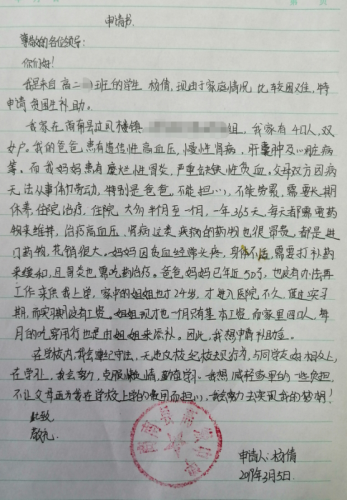 申请书
尊敬的各位领导:
你们好!
我是来自高二 班的学生杨倩,现由于家庭情况比较困难,特
申请贫困生补助。
我家在南 县 楼镇 组,我家有4口人,双
女户,我的爸爸患有遗传性高血压,慢性肾病,肝囊肿及心脏病
等。而我妈妈患有糜烂性胃炎,严重缺铁性贫血,父母双方因病
无法从事体力劳动,特别是爸爸,不能担心,不能劳累,需要长期
休养,住院治疗,住院大约半个月至一月,一年365天,每天都需要药
物来维持,治疗高血压,肾病这类疾病的药物也很贵,都是进
口药物,花销很大。妈妈因贫血经常头疼,身体不适,需要打补药
来缓和,且胃炎也需吃药治疗。爸爸妈妈已年近50多,也没有办法再
工作来供我上学,家中的姐姐也才24岁,才进入医院不久,还实习
期,而实习期没有工资。姐姐现才也一月只有基本工资,而家里四口人,每
月的吃穿用行也是由姐姐来添补。因此,我想申请补助金。
在学校内,我会遵纪守法,无违反校纪校规现象,与同学友好相处,
在学礼,我会努力,克服懒惰,勤奋学习。我想减轻家里的一些负担,
不让父母再为我在学校上学的费用而担心,我会努力去实现我的梦想!
此致
敬礼
申请人:杨倩
2017年3月5日